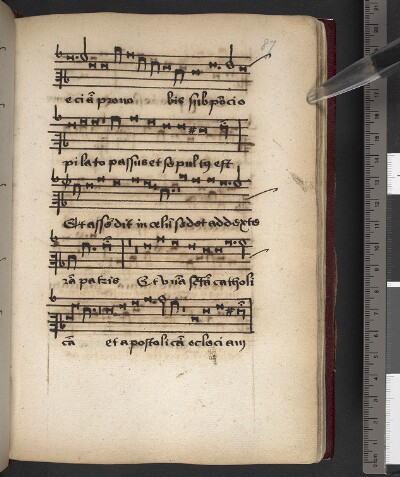 87
eciā pro no bis sub pōcio
pilato passus et sepultꝰ est
Et assēdit in celū sedet ad dexte
rā patris Et vnā sctā catholi
cā et apostolicā eclesiam